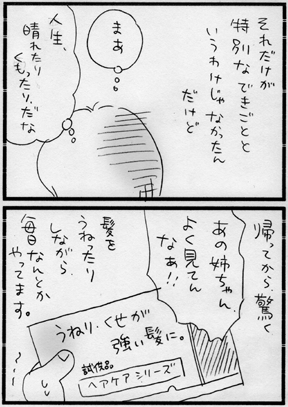 それだけが
特別なできごとと
いうわけじゃなかったん
だけど
まあ
人生、
晴れたり
くもったりだな
帰ってから驚く
あの姉ちゃん、
よく見てん
なぁ!!
髪を
うねったり
しながら、
毎日なんとか
やってます。
うねり・くせが
強い髪に。
試供品
ヘアケアシリーズ